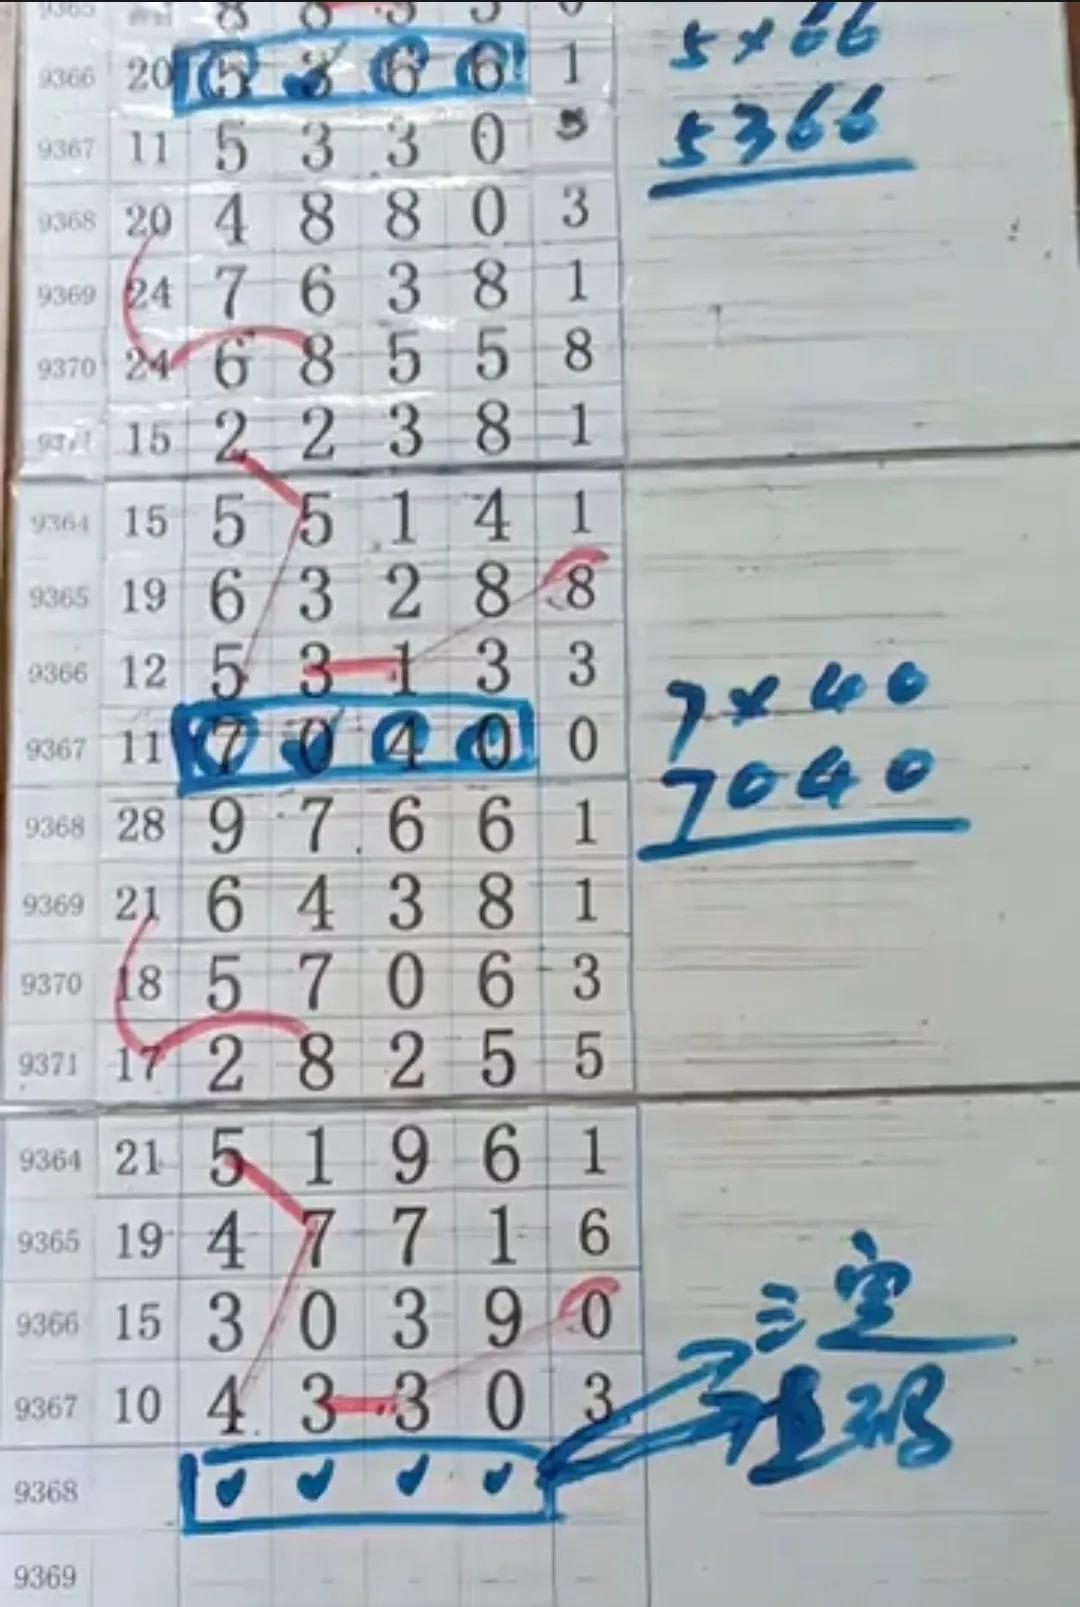 9365 8 8 3 5 0
5×66
9366 20 5 3 6 6 1
5366
9367 11 5 3 3 0 5
9368 20 4 8 8 0 3
9369 24 7 6 3 8 1
9370 24 6 8 5 5 8
9371 15 2 2 3 8 1
9364 15 5 5 1 4 1
9365 19 6 3 2 8 8
9366 12 5 3 1 3 3
7×40
9367 11 7 0 4 0 0
7040
9368 28 9 7 6 6 1
9369 21 6 4 3 8 1
9370 18 5 7 0 6 3
9371 17 2 8 2 5 5
9364 21 5 1 9 6 1
9365 19 4 7 7 1 6
9366 15 3 0 3 9 0
三定
9367 10 4 3 3 0 3
9368
9369